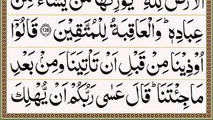 الْاَرْضَ لِلّٰهِ ۙ یُوْرِثُهَا مَنْ یَّشَآءُ مِنْ
عِبَادِهٖ ؕ وَالْعَاقِبَةُ لِلْمُتَّقِیْنَ ﴿۱۲۸﴾ قَالُوْۤا
اُوْذِیْنَا مِنْ قَبْلِ اَنْ تَاْتِیَنَا وَمِنْۢ بَعْدِ
مَا جِئْتَنَا ؕ قَالَ عَسٰی رَبُّكُمْ اَنْ یُّهْلِكَ